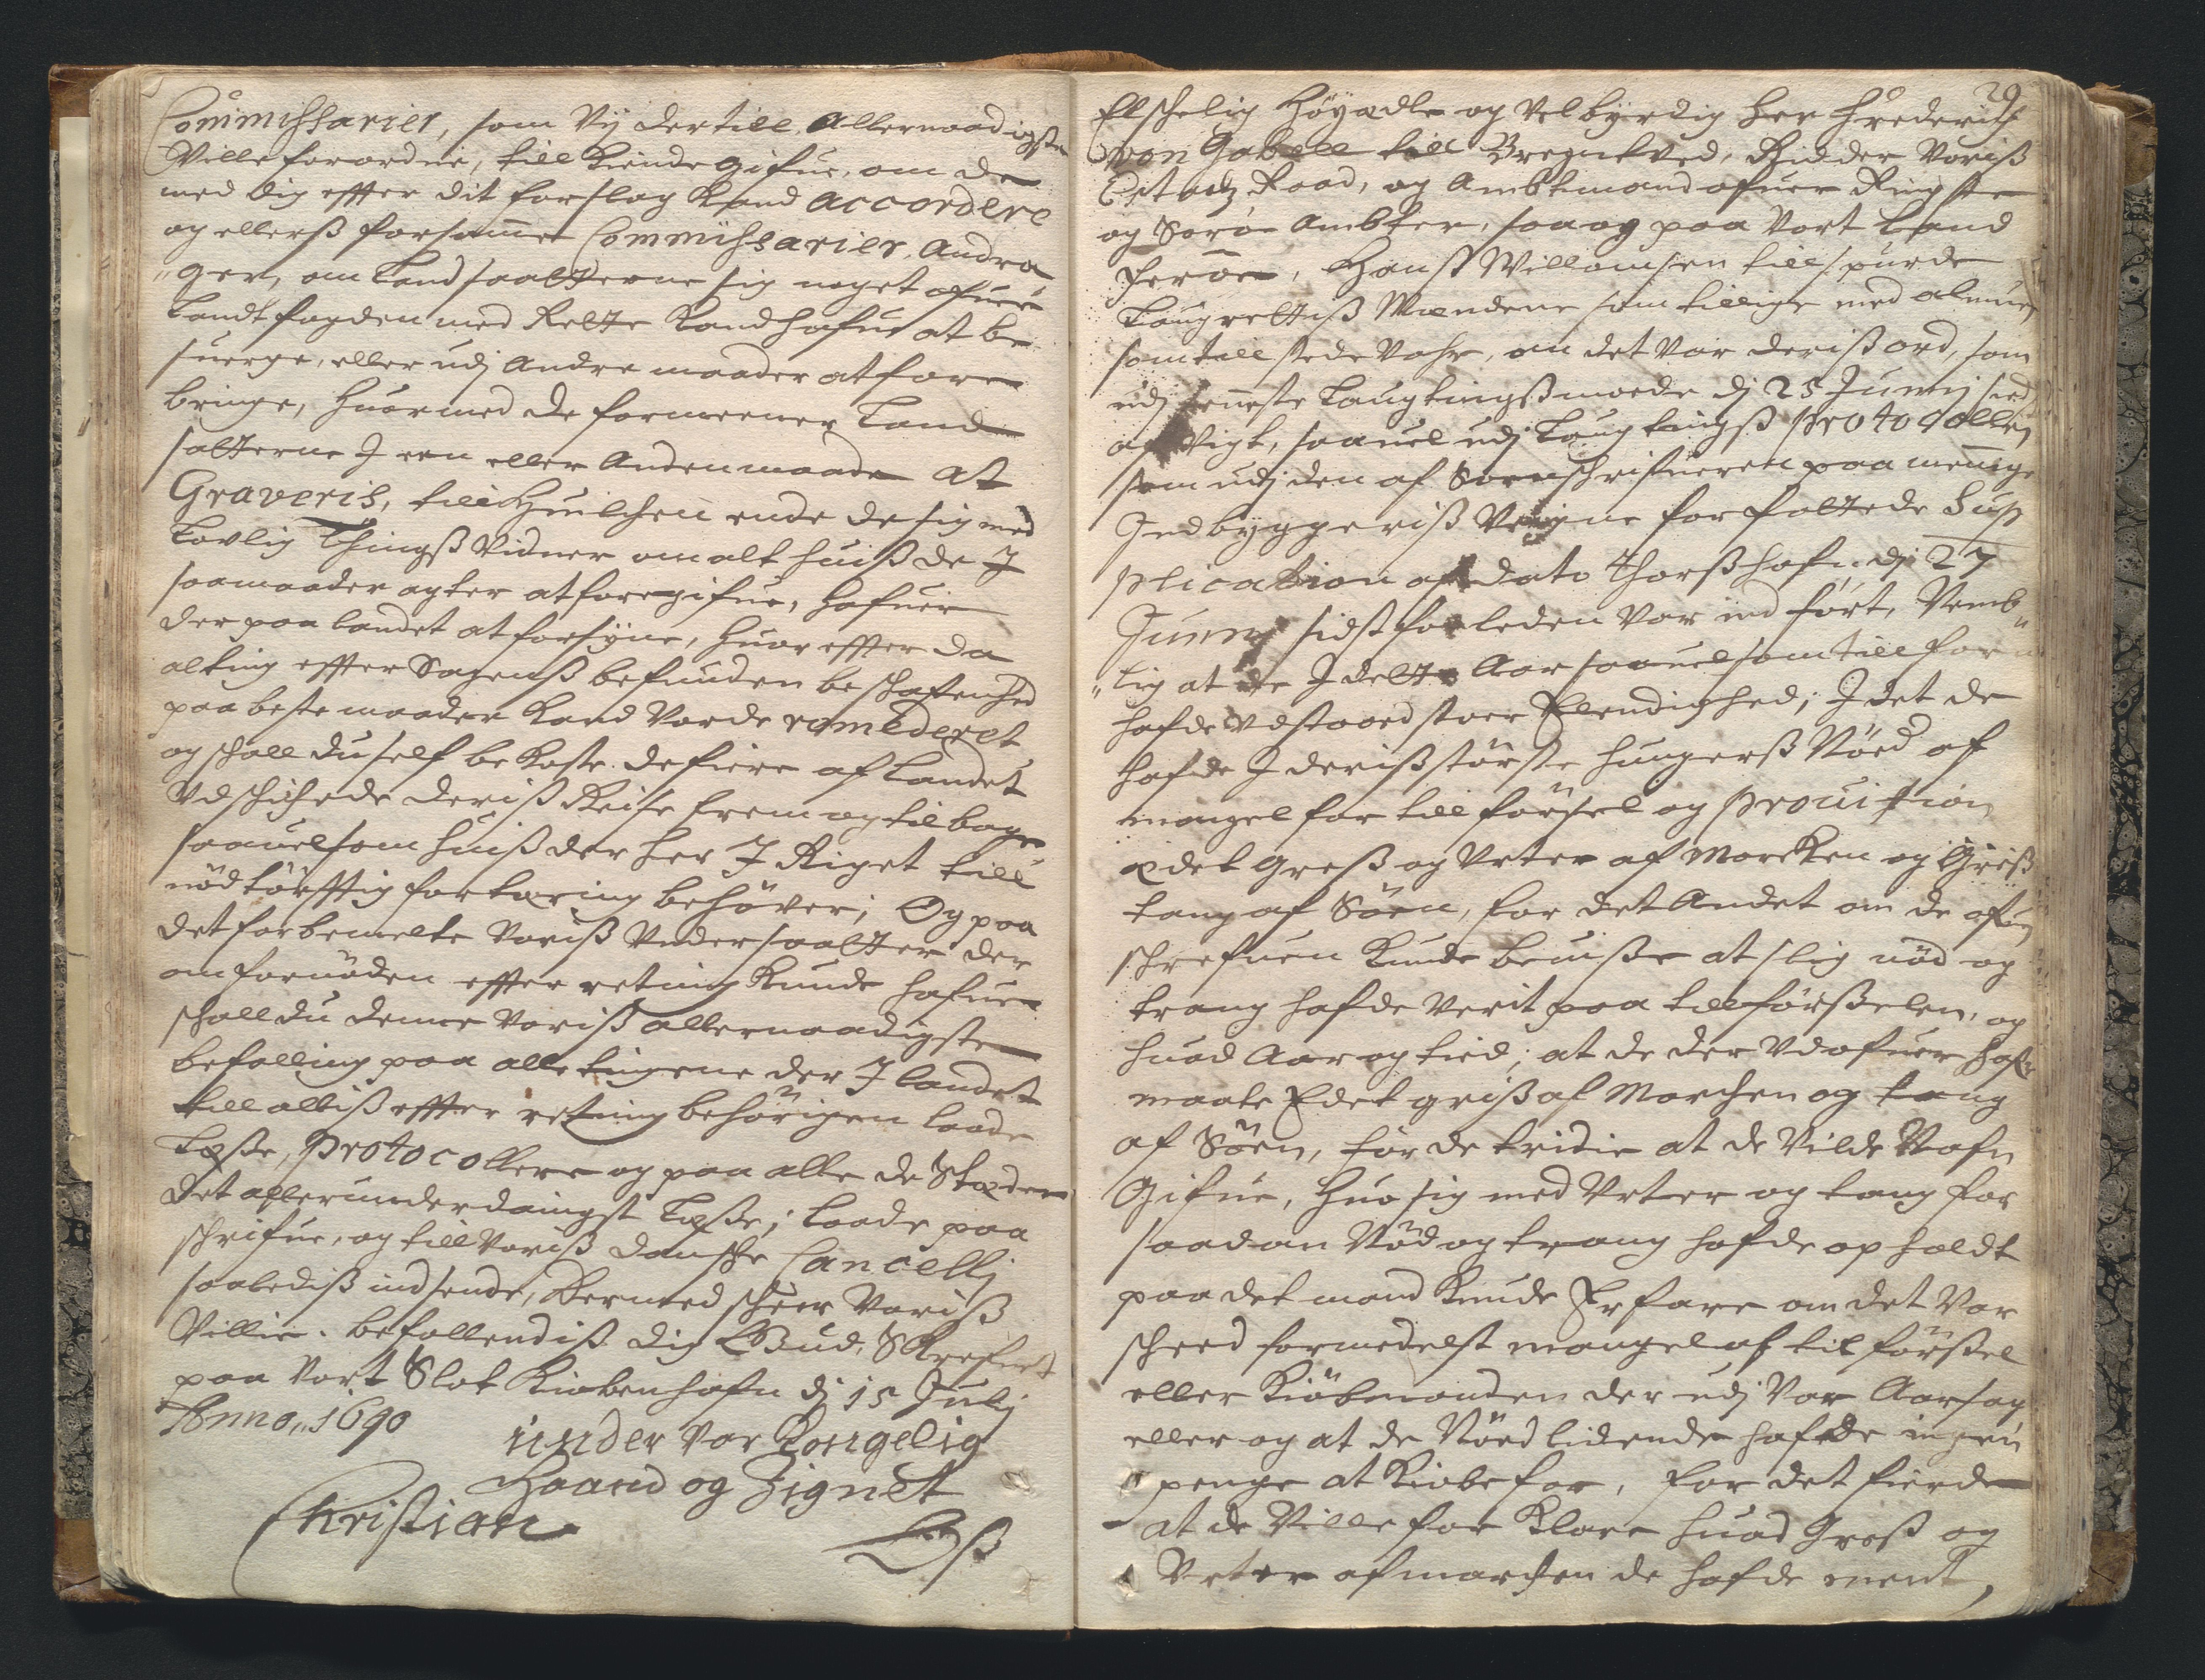 Commissarier, som Vj dertill Allernaadigste
Ville forordne, till Kiende gifue, om de
med dig effter dit forslag Kand Accordere
og ellerß forsamme Commissarier, Andra
"ger, om Landsaatterne sig noget ofuer
Landtfogden med Rette Kand hafue at be
suerge, eller udj Andre maader at fore
bringe, huormed de formeener Land
satterne J een eller Anden maade at
Graveris, till Huilchen ende de sig med
Lovlig Thingß Vidner om alt huiß de J
saamaader agter at foregifue, hafuer
der paa landet at forsÿne, huor effter da
alting effter Sagenß befunden beschafenhed
paa beste maader Kand Vorde remederet
og schall du self bekoste de fiere af landet
Vdschichede deriß Reise frem og tilbage
saauelsom huiß der her J Riget till
nödtörfftig fortæring behöver; Og paa
det forbemelte Voriß Undersaatter der
om fornöden effter retning Kunde hafue
schall du denne Voriß allernaadigste
befalling paa alle tingene der J landet
till alliß effter retning behörigen lade
Læße, protocollere og paa alle de Stæder
det allerunderdanigst Læße; Lade paa
schrifue, og till Voriß danske Cancellj
saalediß indsende, Dermed scheer Voriß
Villie. befallendiß dig Gud, Skrefuet
paa Vort Slot Kiøbenhafn dj 15 Julij
Anno, 1690
under Vor Kongelig
Haand og Zignet
Christian
LS
29
Elschelig Höÿædle og Velbÿrdig Her Frederich
von Gabell till Bregntved, Ridder Voriß
Etatz Raad, og Ambtmand ofuer Ringste
og Sorö Ambter, saa og paa Vort Land
Ferøe, Hanß Willomsen till spurde
Laugrettiß Mændene som tillige med almue
som till stede Vahr, om det Var deriß ord, som
udj seneste Laugtingßmoede dj 25 Junnij sid
afvigt, saauel udj Laugtingß protocollen
som udj den af Sorenschrifueren paa menige
Indbÿggeriß Vegne forfattede Sup
plication af dato Thorßhafn dj 27
Junnj sidst forleden Var ind fört, Nemb"
"lig at de J dette Aar saauelsom till forn
hafde Vdstaaed stoer Elendighed; J det de
hafde J deriß störste hungerß Nöed af
mangel for till försel og prouision
ædet Greß og Urter af Marcken og Griß
tang af Söen, for det Andet om de ofuen
schrefuen Kunde beuiße at slig nöd og
trang hafde Verit paa tillförßelen, og
huad Aar og tied; at de der Udofuer hafr
maate Edet griß af Marchen og tang
af Söen, for de tridie at de Vilde Nafn
Gifue, huo sig med Urter og tang for
saadan Nöd og trang hafde op holdt
paa det mand Kunde Erfare om det Var
scheed formedelst mangel af till förßel
eller Kiöbmanden der udj Var Aarsag
eller og at de Nöedlidende hafde ingen
penge at Kiøbe for, for det fierde
at de Ville for Klare huad Greß og
Urter af marchen de hafde ment,